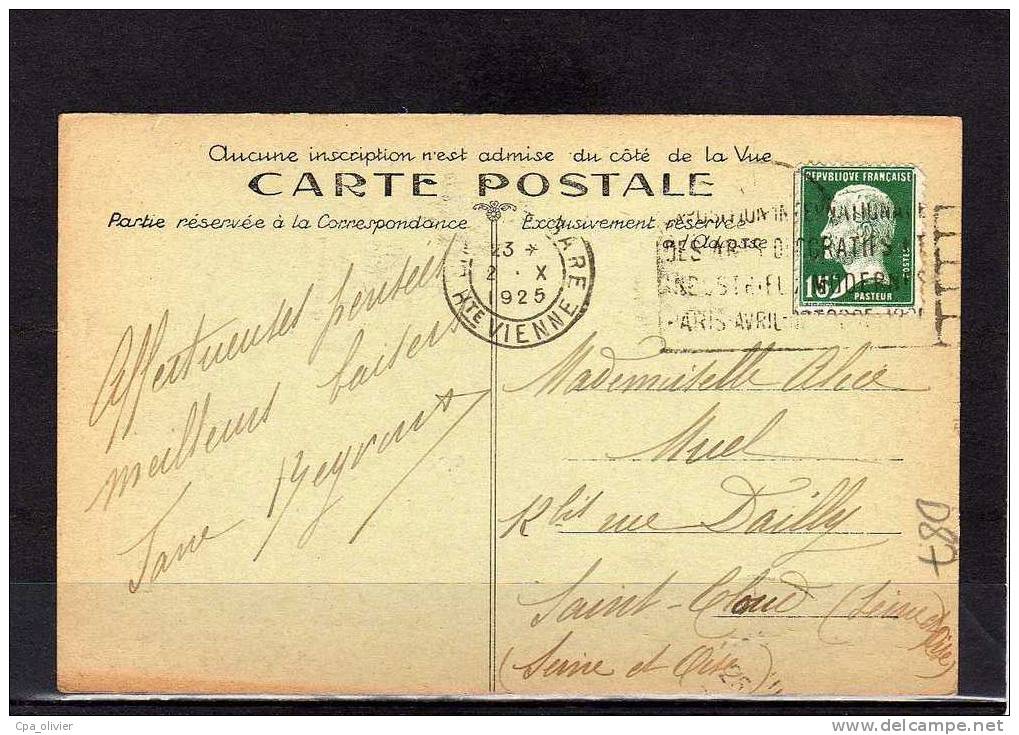 Aucune inscription n'est admise du côté de la Vue
CARTE POSTALE
Partie réservée à la Correspondance
Exclusivement réservée
à l'Adresse
REPUBLIQUE FRANÇAISE
POSTES
PASTEUR
GARE
23 *
2 . X
1925
HTE VIENNE
EXPOSITION INTERNATIONALE
DES ARTS DECORATIFS
INDUSTRIELS MODERNES
PARIS AVRIL OCTOBRE
Affectueuses pensées
meilleurs baisers
Mademoiselle Alice
Muel
bis rue Dailly
Saint-Cloud (Seine et Oise)
(Seine et Oise)
D87
Cpa_olivier
www.delcampe.net